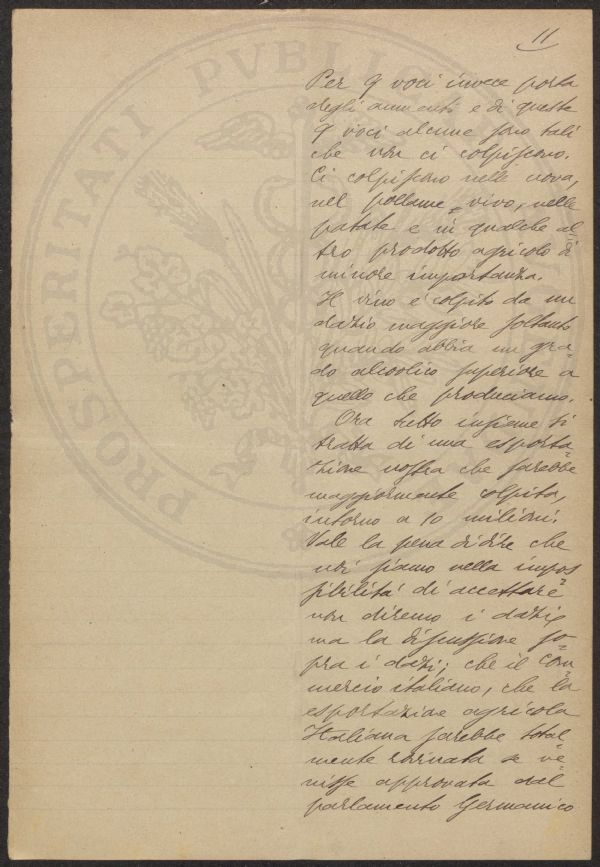 11
PROSPERITATI PVBLIC
Per 9 voci invece porta
degli aumenti e di queste
9 voci alcune sono tali
che non ci colpiscono.
Ci colpiscono nelle uova,
nel pollame vivo, nelle
patate e in qualche al=
tro prodotto agricolo di
minore importanza.
Il vino è colpito da un
dazio maggiore soltanto
quando abbia un gra=
do alcoolico superiore a
quello che produciamo.
Ora tutto insieme si
tratta di una esporta=
zione nostra che sarebbe
maggiormente colpita,
intorno a 10 milioni.
Vale la pena di dire che
noi siamo nella impos=
sibilità di accettare
non diremo i dazi
ma la discussione so=
pra i dazi; che il com=
mercio italiano, che la
esportazione agricola
Italiana sarebbe total=
mente rovinata se ve=
nisse approvata dal
parlamento Germanico